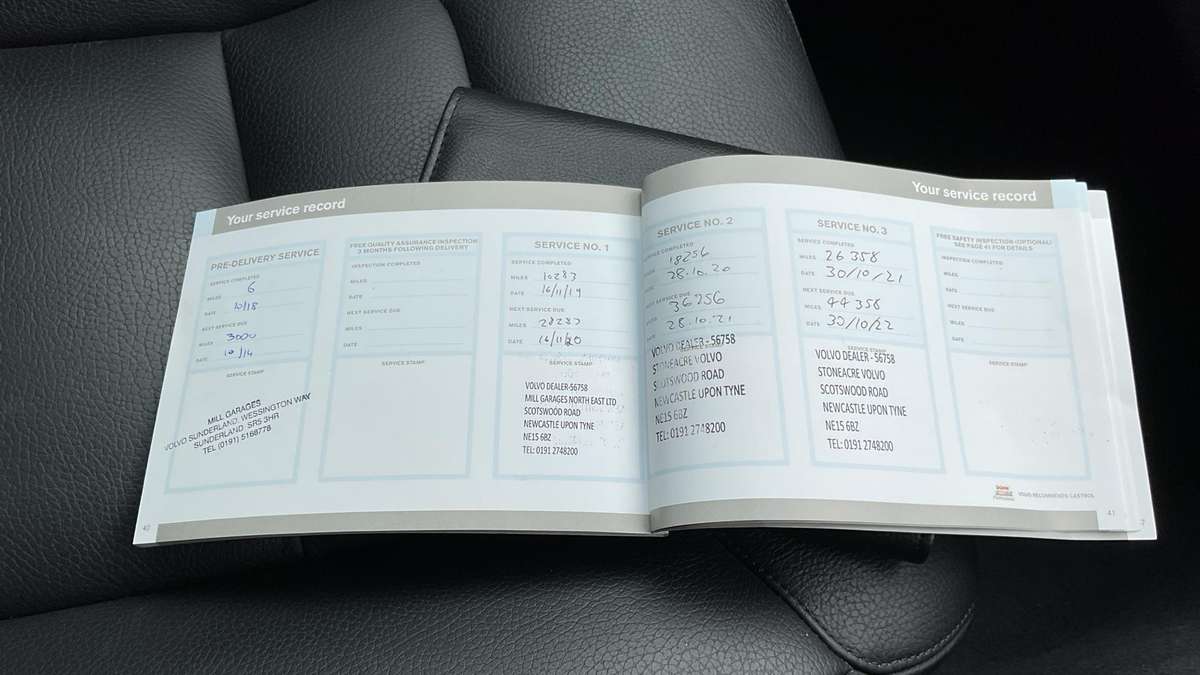 Your service record
PRE-DELIVERY SERVICE
SERVICE COMPLETED
MILES 6
DATE 10/18
NEXT SERVICE DUE
MILES 3000
DATE 10/14
SERVICE STAMP
MILL GARAGES
VOLVO SUNDERLAND, WESSINGTON WAY
SUNDERLAND SR5 3HR
TEL (0191) 5168778
FREE QUALITY ASSURANCE INSPECTION
3 MONTHS FOLLOWING DELIVERY
INSPECTION COMPLETED
MILES
DATE
NEXT SERVICE DUE
MILES
DATE
SERVICE STAMP
SERVICE NO. 1
SERVICE COMPLETED
MILES 10283
DATE 16/11/19
NEXT SERVICE DUE
MILES 28283
DATE 16/11/20
VOLVO DEALER-56758
MILL GARAGES NORTH EAST LTD
SCOTSWOOD ROAD
NEWCASTLE UPON TYNE
NE15 6BZ
TEL: 0191 2748200
40
Your service record
SERVICE NO. 2
SERVICE COMPLETED
MILES 18256
28.10.20
NEXT SERVICE DUE
MILES 36256
28.10.21
VOLVO DEALER - 56758
STONEACRE VOLVO
SCOTSWOOD ROAD
NEWCASTLE UPON TYNE
NE15 6BZ
TEL: 0191 2748200
SERVICE NO. 3
SERVICE COMPLETED
MILES 26358
DATE 30/10/21
NEXT SERVICE DUE
MILES 44358
DATE 30/10/22
SERVICE STAMP
VOLVO DEALER - 56758
STONEACRE VOLVO
SCOTSWOOD ROAD
NEWCASTLE UPON TYNE
NE15 6BZ
TEL: 0191 2748200
FREE SAFETY INSPECTION (OPTIONAL)
SEE PAGE 41 FOR DETAILS
INSPECTION COMPLETED
MILES
DATE
NEXT SERVICE DUE
MILES
DATE
SERVICE STAMP
VOLVO RECOMMENDS CASTROL
41